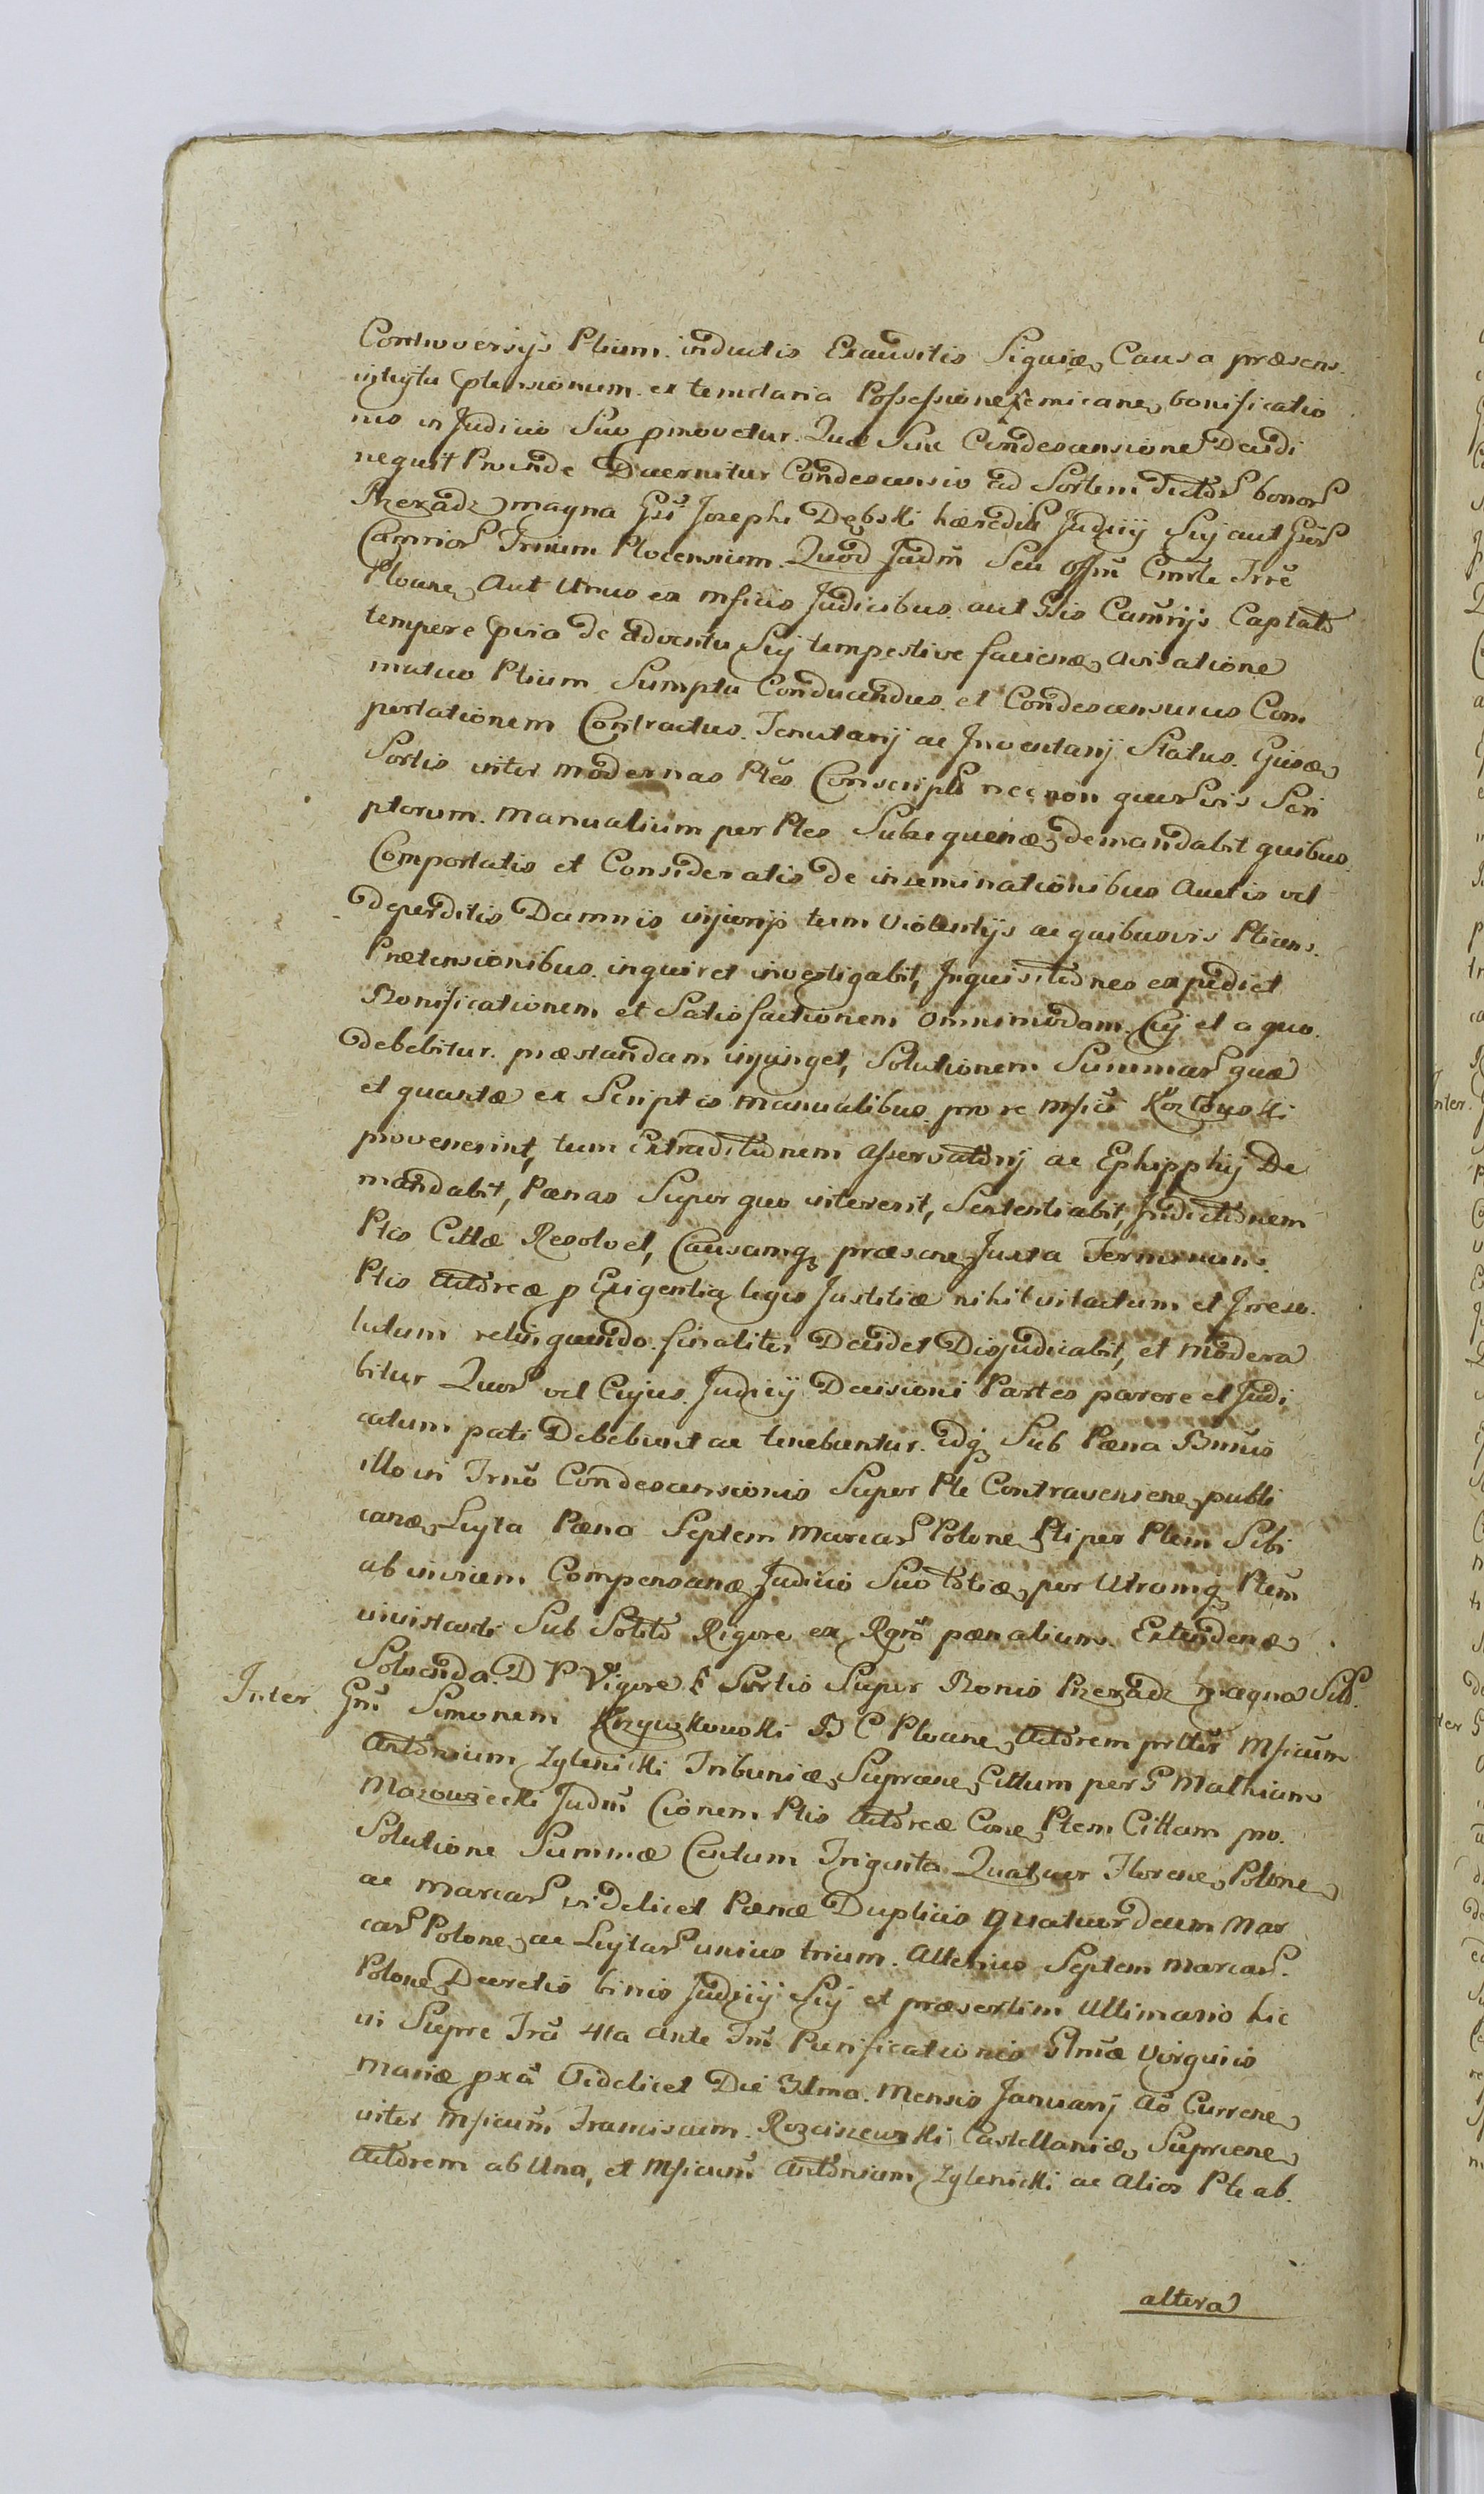 Controversijs Ptium. inductis Exauditis Siquidē Causa præsens.
intuitu Ptensionum. ex tenutaria Possessione bonificatio
nis in Judicio Suo pmovetur. Quæ Sine Condescensione Decidi
nequit Proinde Decernitur Condescensio ad Sortem dictor bonor
Przeradz magna Gsi Josephi Dębski hæredis Judicij Sui aut Gsor
Camrior Trium Plocensium. Quod Judm Seu Offm Cmrle Trre
Plocane, Aut Unus ex Mficis Judicibus. aut Gsis Camrijs Captato
tempore pvia de Adventu Suj tempestive faciene, avisatione
mutuo Ptium Sumptu Conducendus. et Condescensurus Com
portationem Contractus. Tenutarij ac Inventarij Status. Ejusdē
Sortis inter modernas Ptes Conscripti necnon quorvis Scri
ptorum. manualium per Ptes Subsequenæ, demandabit quibus.
Comportatis et Consideratis de inseminationibus Auctis vel
deperditis Damnis injurijs tum Violentijs ac quibusvis Ptium.
Prætensionibus. inquiret investigabit, Inquisitiones expediet
Bonificationem et Satisfactionem omnimodam. Cuj et a quo.
debebitur. præstandam injunget, Solutionem Summar quæ
et quantæ ex Scriptis manualibus. pro re Mfici
provenerint, tum Extraditionem Asservatorij ac Ephipphij De
mandabit, Pœnas Super quo intererit, Sententiabit, Judicationem
Ptis Cittæ Resolvet, Causamq præsene, Juxta Terminum.
Ptis Actoreæ p Exigentia legis Justitiæ nihil intactum et Irreso.
lutum relinquendo. finaliter Decidet Disjudicabit, et modera
bitur Quor vel Cujus. Judicij Decisioni Partes parere et Judi
catum pati Debebunt ac tenebuntur. Idq Sub Pœna Bnnis
illo in Trno Condescensionis Super Pte Contraveniene, publi
canæ, Luyta Pœna Septem Marcar Polone, Pti per Ptem Sibi
ab invicem Compensanæ, Judicio Suo Totiæ, per Utramq Ptem
Sub Solito Rigore ex Rgro pœnalium Extendenæ,
Solvenda. D P Vigore. Sortis Super Bonis Przeradz magna
Inter. Gnm Simonem Krzyżkowski B C Plocane, Actorem Mficum
Antonium Zglenicki Tribunidē, Suprcne, Cittum per G Mathiam
Mazowiecki Judm Cionem Ptis Actoreæ Cone, Ptem Cittam pro.
Solutione Summæ Centum Triginta Quatuor Florene, Polone,
ac marcar videlicet Pœnæ Duplicis quatuordecim Mar
car Polone, ac Luytar unius trium. Alterius Septem marcar.
Polone, Decretis binis Judicij Suj et præsertim Ultimario hic
in Suprc Tra 4ta ante Fm Purificationis Btmæ Virginis
Mariæ pxa Videlicet Die 31ma. Mensis Januarij Ao Currene,
inter Mficum Franciscum. Rościszewski Castellanidē, Suprcene,
Actorem ab Una, et Mficum Antonium Zglenicki ac Alios Pte ab.
altera